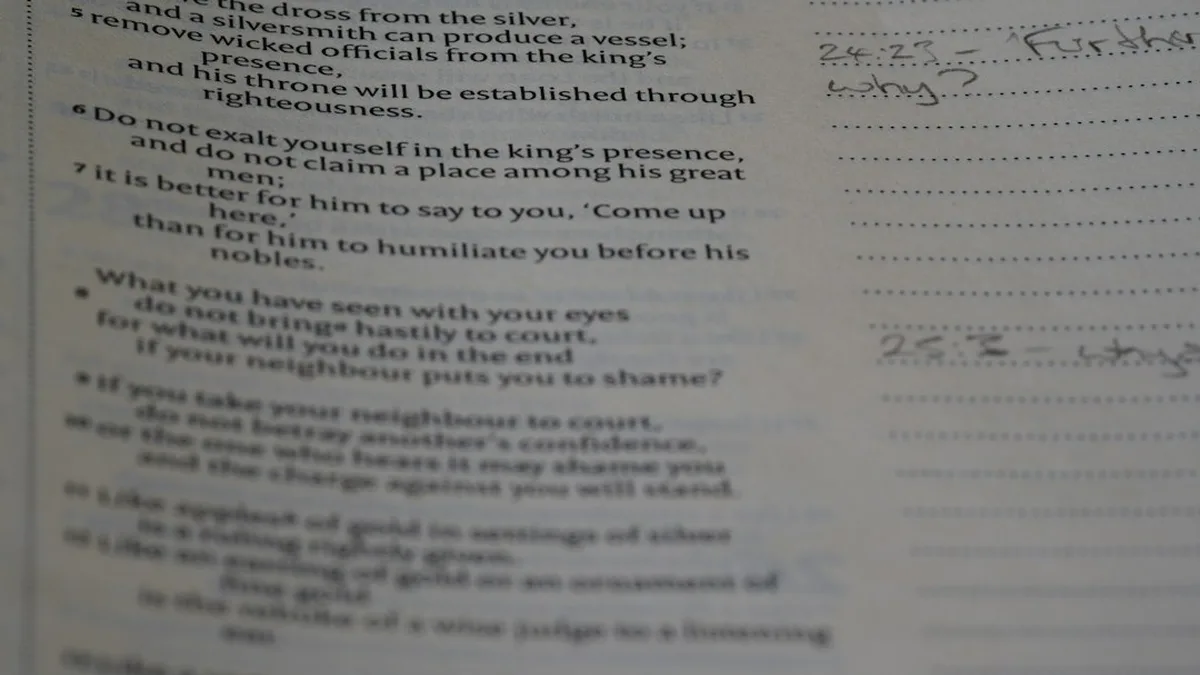 the dross from the silver,
and a silversmith can produce a vessel;
5 remove wicked officials from the king's
presence,
and his throne will be established through
righteousness.
6 Do not exalt yourself in the king's presence,
and do not claim a place among his great
men;
7 it is better for him to say to you, ‘Come up
here,’
than for him to humiliate you before his
nobles.
What you have seen with your eyes
8 do not bring hastily to court,
for what will you do in the end
if your neighbour puts you to shame?
9 If you take your neighbour to court,
do not betray another's confidence,
10 or the one who hears it may shame you
and the charge against you will stand.
11 Like apples of gold in settings of silver
is a ruling rightly given.
12 Like an earring of gold or an ornament of
fine gold
is the rebuke of a wise judge to a listening
ear.
24:23 - 'Further
why?